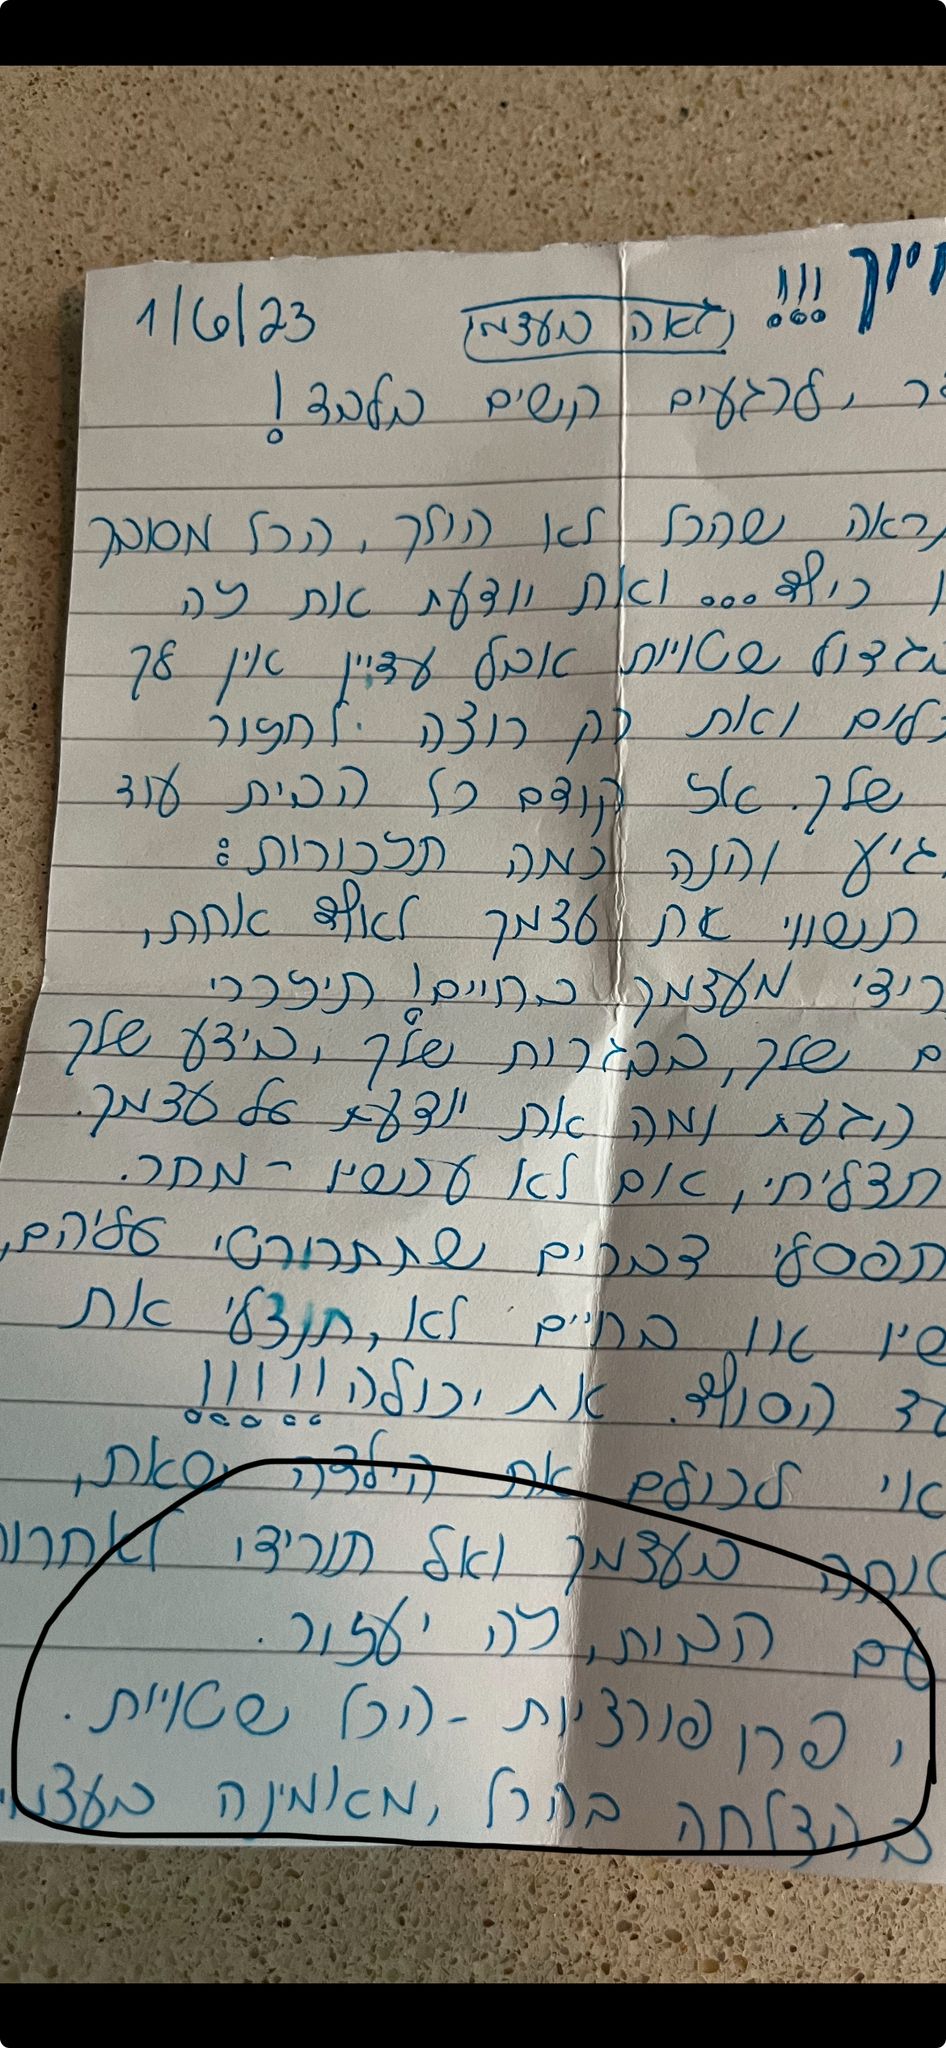 חיוך !!!
גאה בעצמי
1/6/23
לרגעים קשים בלבד!
נראה שהכל לא הולך, הכל מסובך
ואת יודעת את זה
מגדול שטויות אבל עדיין אין לך
כלום ואת רק רוצה לחזור
שלך. אז קודם כל הבית עוד
יגיע והנה כמה תזכורות:
תשווי את עצמך לאף אחת,
תורידי מעצמך בחיים! תיזכרי
שלך, בבגרות שלך, בידע שלך
הגעת ומה את יודעת על עצמך.
תצליחי, אם לא עכשיו - מחר.
תפסלי דברים שתתחרטי עליהם,
עכשיו או בחיים לא, תנצלי את
עד הסוף. את יכולה!!!!!!
לכולם את הילדה שאת,
בטוחה בעצמך ואל תורידי לאחרות
עם הבית, זה יעזור.
פרופורציות - הכל שטויות.
בהצלחה בהכל, מאמינה בעצמי